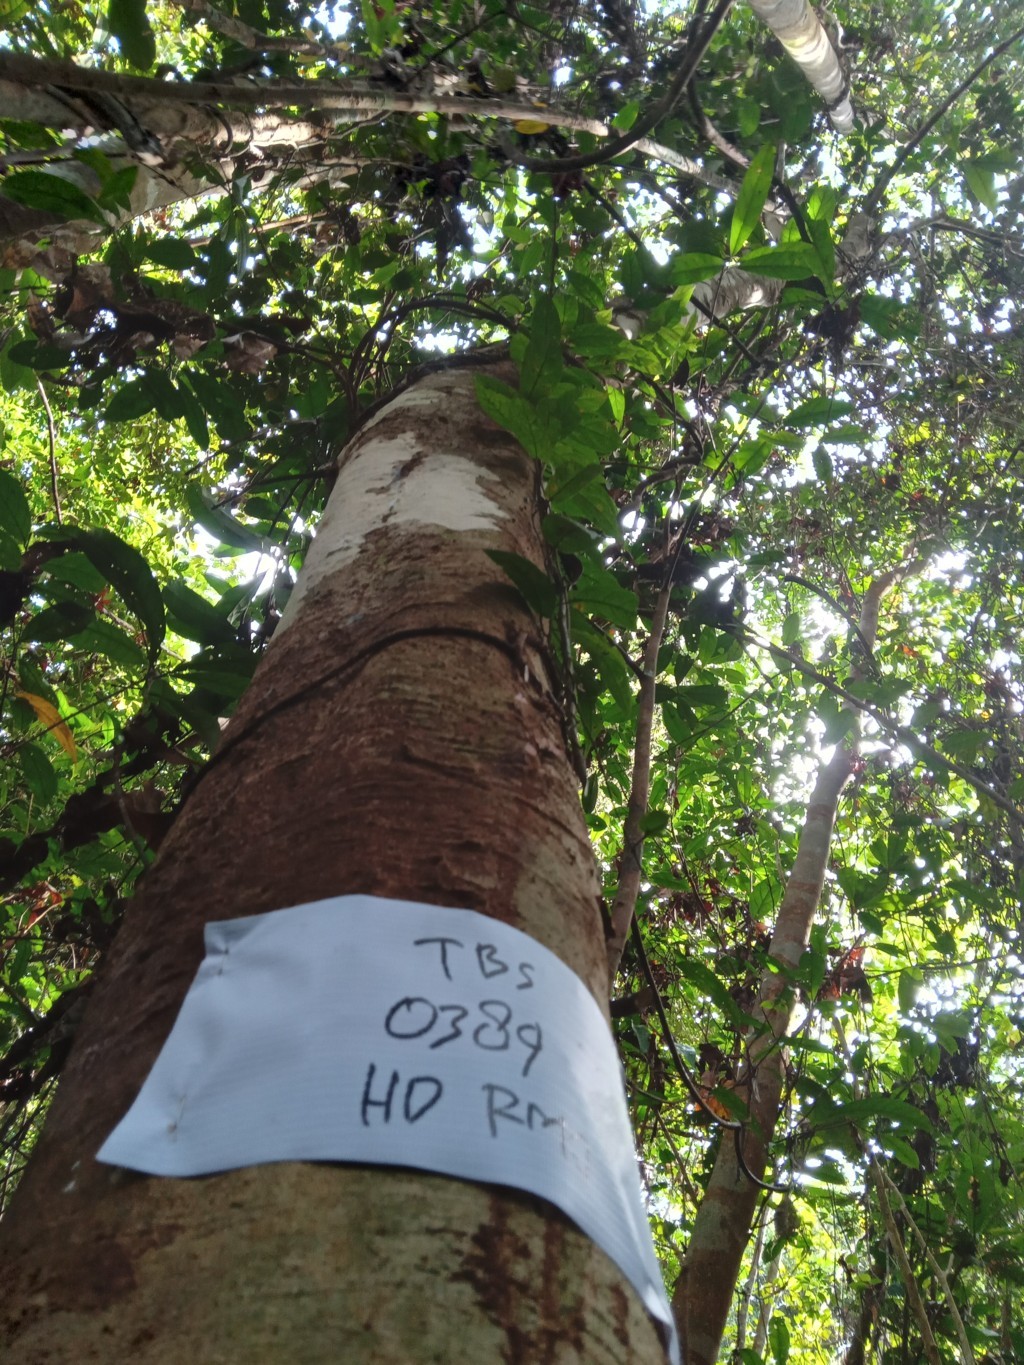 TBs
0389
HD RM